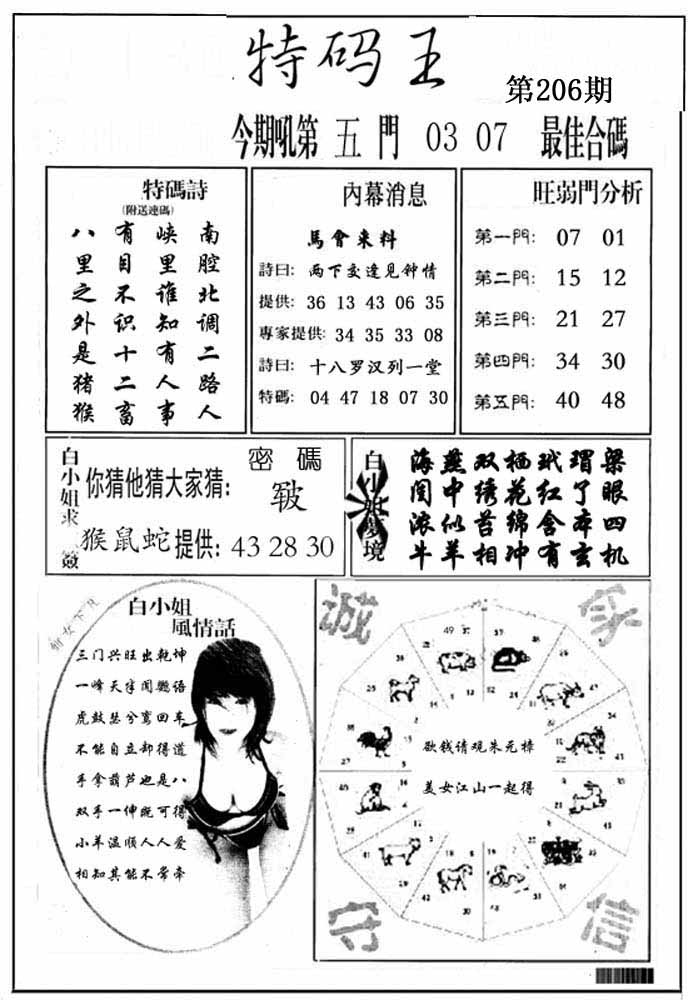 特码王
第206期
今期吼第五門 03 07 最佳合碼
特碼詩
(附送連碼)
南腔北调二路人
峡里谁知有人事
有目不识十二畜
八里之外是猪猴
內幕消息
馬會来料
詩曰: 两下交逢见钟情
提供: 36 13 43 06 35
專家提供: 34 35 33 08
詩曰: 十八罗汉列一堂
特碼: 04 47 18 07 30
旺弱門分析
第一門: 07 01
第二門: 15 12
第三門: 21 27
第四門: 34 30
第五門: 40 48
白小姐求簽
密碼
你猜他猜大家猜:
皲
猴鼠蛇提供: 43 28 30
白小姐夢境
梁眼四机
瑁了本玄
玳红含有
栖花绵冲
双绣苔相
燕中似羊
海闺浓牛
白小姐
風情話
三门兴旺出乾坤
一峰天半闻鹦语
虎鼓瑟兮鸾回车
不能自立却得道
手拿葫芦也是八
双手一伸既可得
小羊温顺人人爱
相知其能不常牵
诚
家
守
信
欲钱请观朱元樟
美女江山一起得